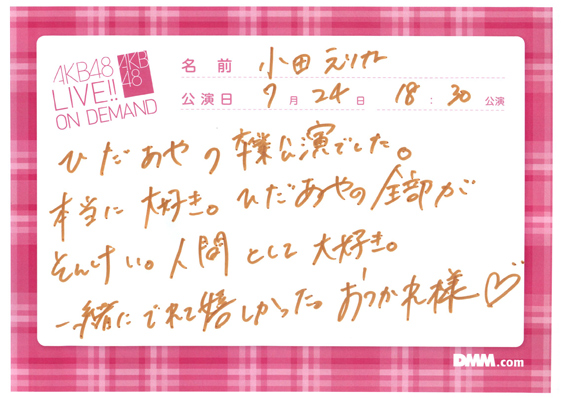 AKB48
LIVE!!
ON DEMAND
AKB
48
名前 小田えりな
公演日 7月24日 18:30公演
ひだあやの卒業公演でした。
本当に大好き。ひだあやの全部が
そんけい。人間として大好き。
一緒にでれて嬉しかった。おつかれ様♡
DMM.com